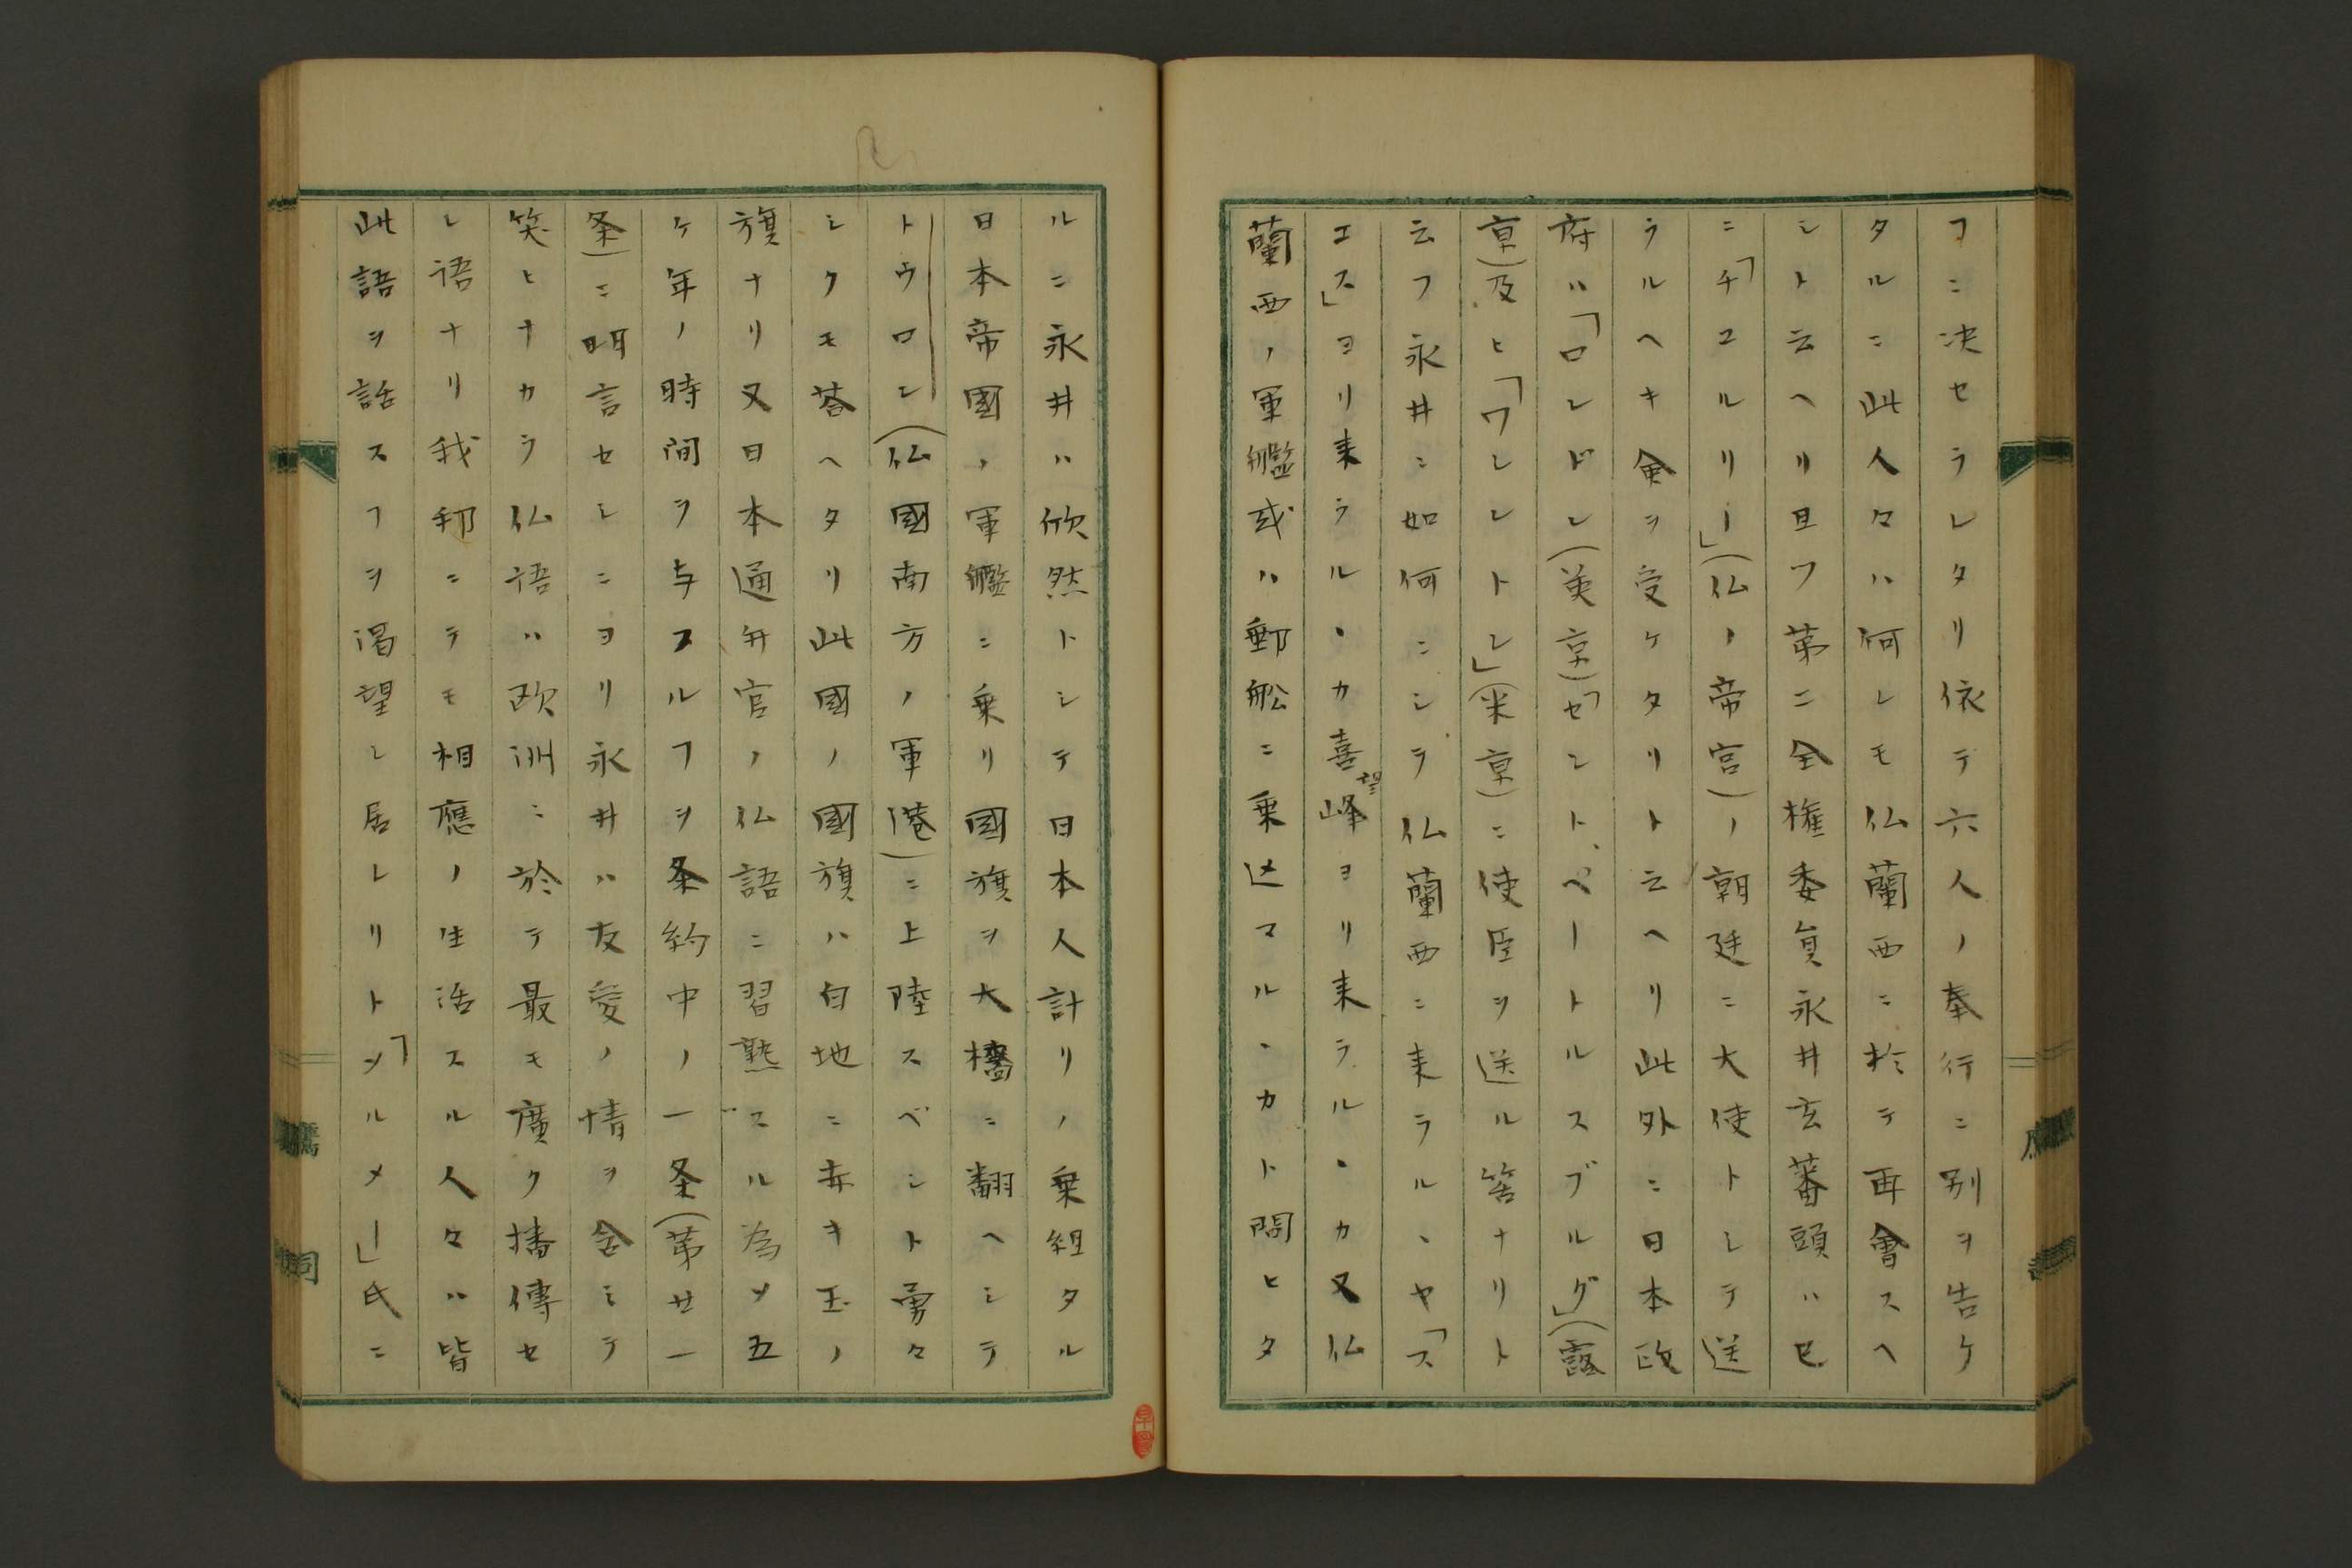 ヿニ决セラレタリ依テ六人ノ奉行ニ別ヲ告ケ
タルニ此人々ハ何レモ仏蘭西ニ於テ再會スヘ
シト云ヘリ且フ第二全権委員永井玄蕃頭ハ已
ニ「チユルリー」(仏ノ帝宮)ノ朝廷ニ大使トシテ送
ラルヘキ命ヲ受ケタリト云ヘリ此外ニ日本政
府ハ「ロンドン(英京)「セント、ペートルスブルグ」(露
京)及ヒ「ワシントン」(米京)ニ使臣ヲ送ル筈ナリト
云フ永井ニ如何ニシテ仏蘭西ニ来ラルヽヤ「ス
エス」ヨリ来ラルヽカ喜望峰ヨリ来ラルヽカ又仏
蘭西ノ軍艦或ハ郵舩ニ乗込マルヽカト問ヒタ
ルニ永井ハ欣然トシテ日本人計リノ乗組タル
日本帝國ノ軍艦ニ乗リ國旗ヲ大檣ニ翻ヘシテ
トウロン(仏國南方ノ軍港)ニ上陸スベシト勇々
シクモ荅ヘタリ此國ノ國旗ハ白地ニ赤キ玉ノ
旗ナリ又日本通弁官ノ仏語ニ習熟スル為メ五
ケ年ノ時間ヲ与フルヿヲ条約中ノ一条(第廿一
条)ニ明言セシニヨリ永井ハ友愛ノ情ヲ含ミテ
笑ヒナカラ仏語ハ欧洲ニ於テ最モ廣ク播傳セ
シ語ナリ我邦ニテモ相應ノ生活スル人々ハ皆
此語ヲ話スヿヲ渇望シ居レリト「メルメー」氏ニ